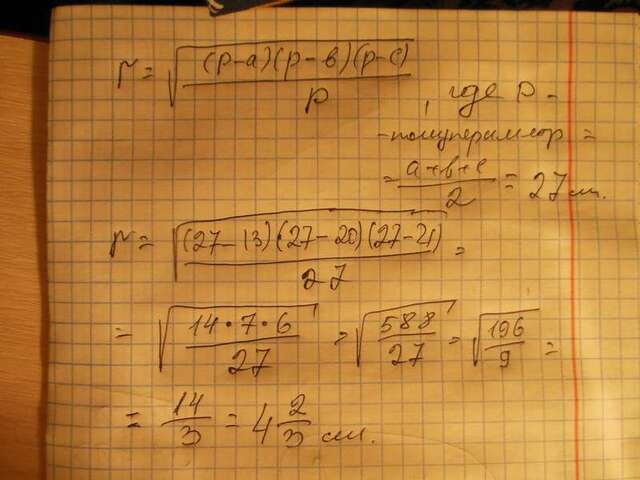 r = √((p-a)(p-в)(p-c)/p)
, где p -
- полупериметр =
= (a+в+c)/2 = 27 см.
r = √((27-13)(27-20)(27-21)/27) =
= √(14·7·6/27) = √(588/27) = √(196/9) =
= 14/3 = 4 2/3 см.